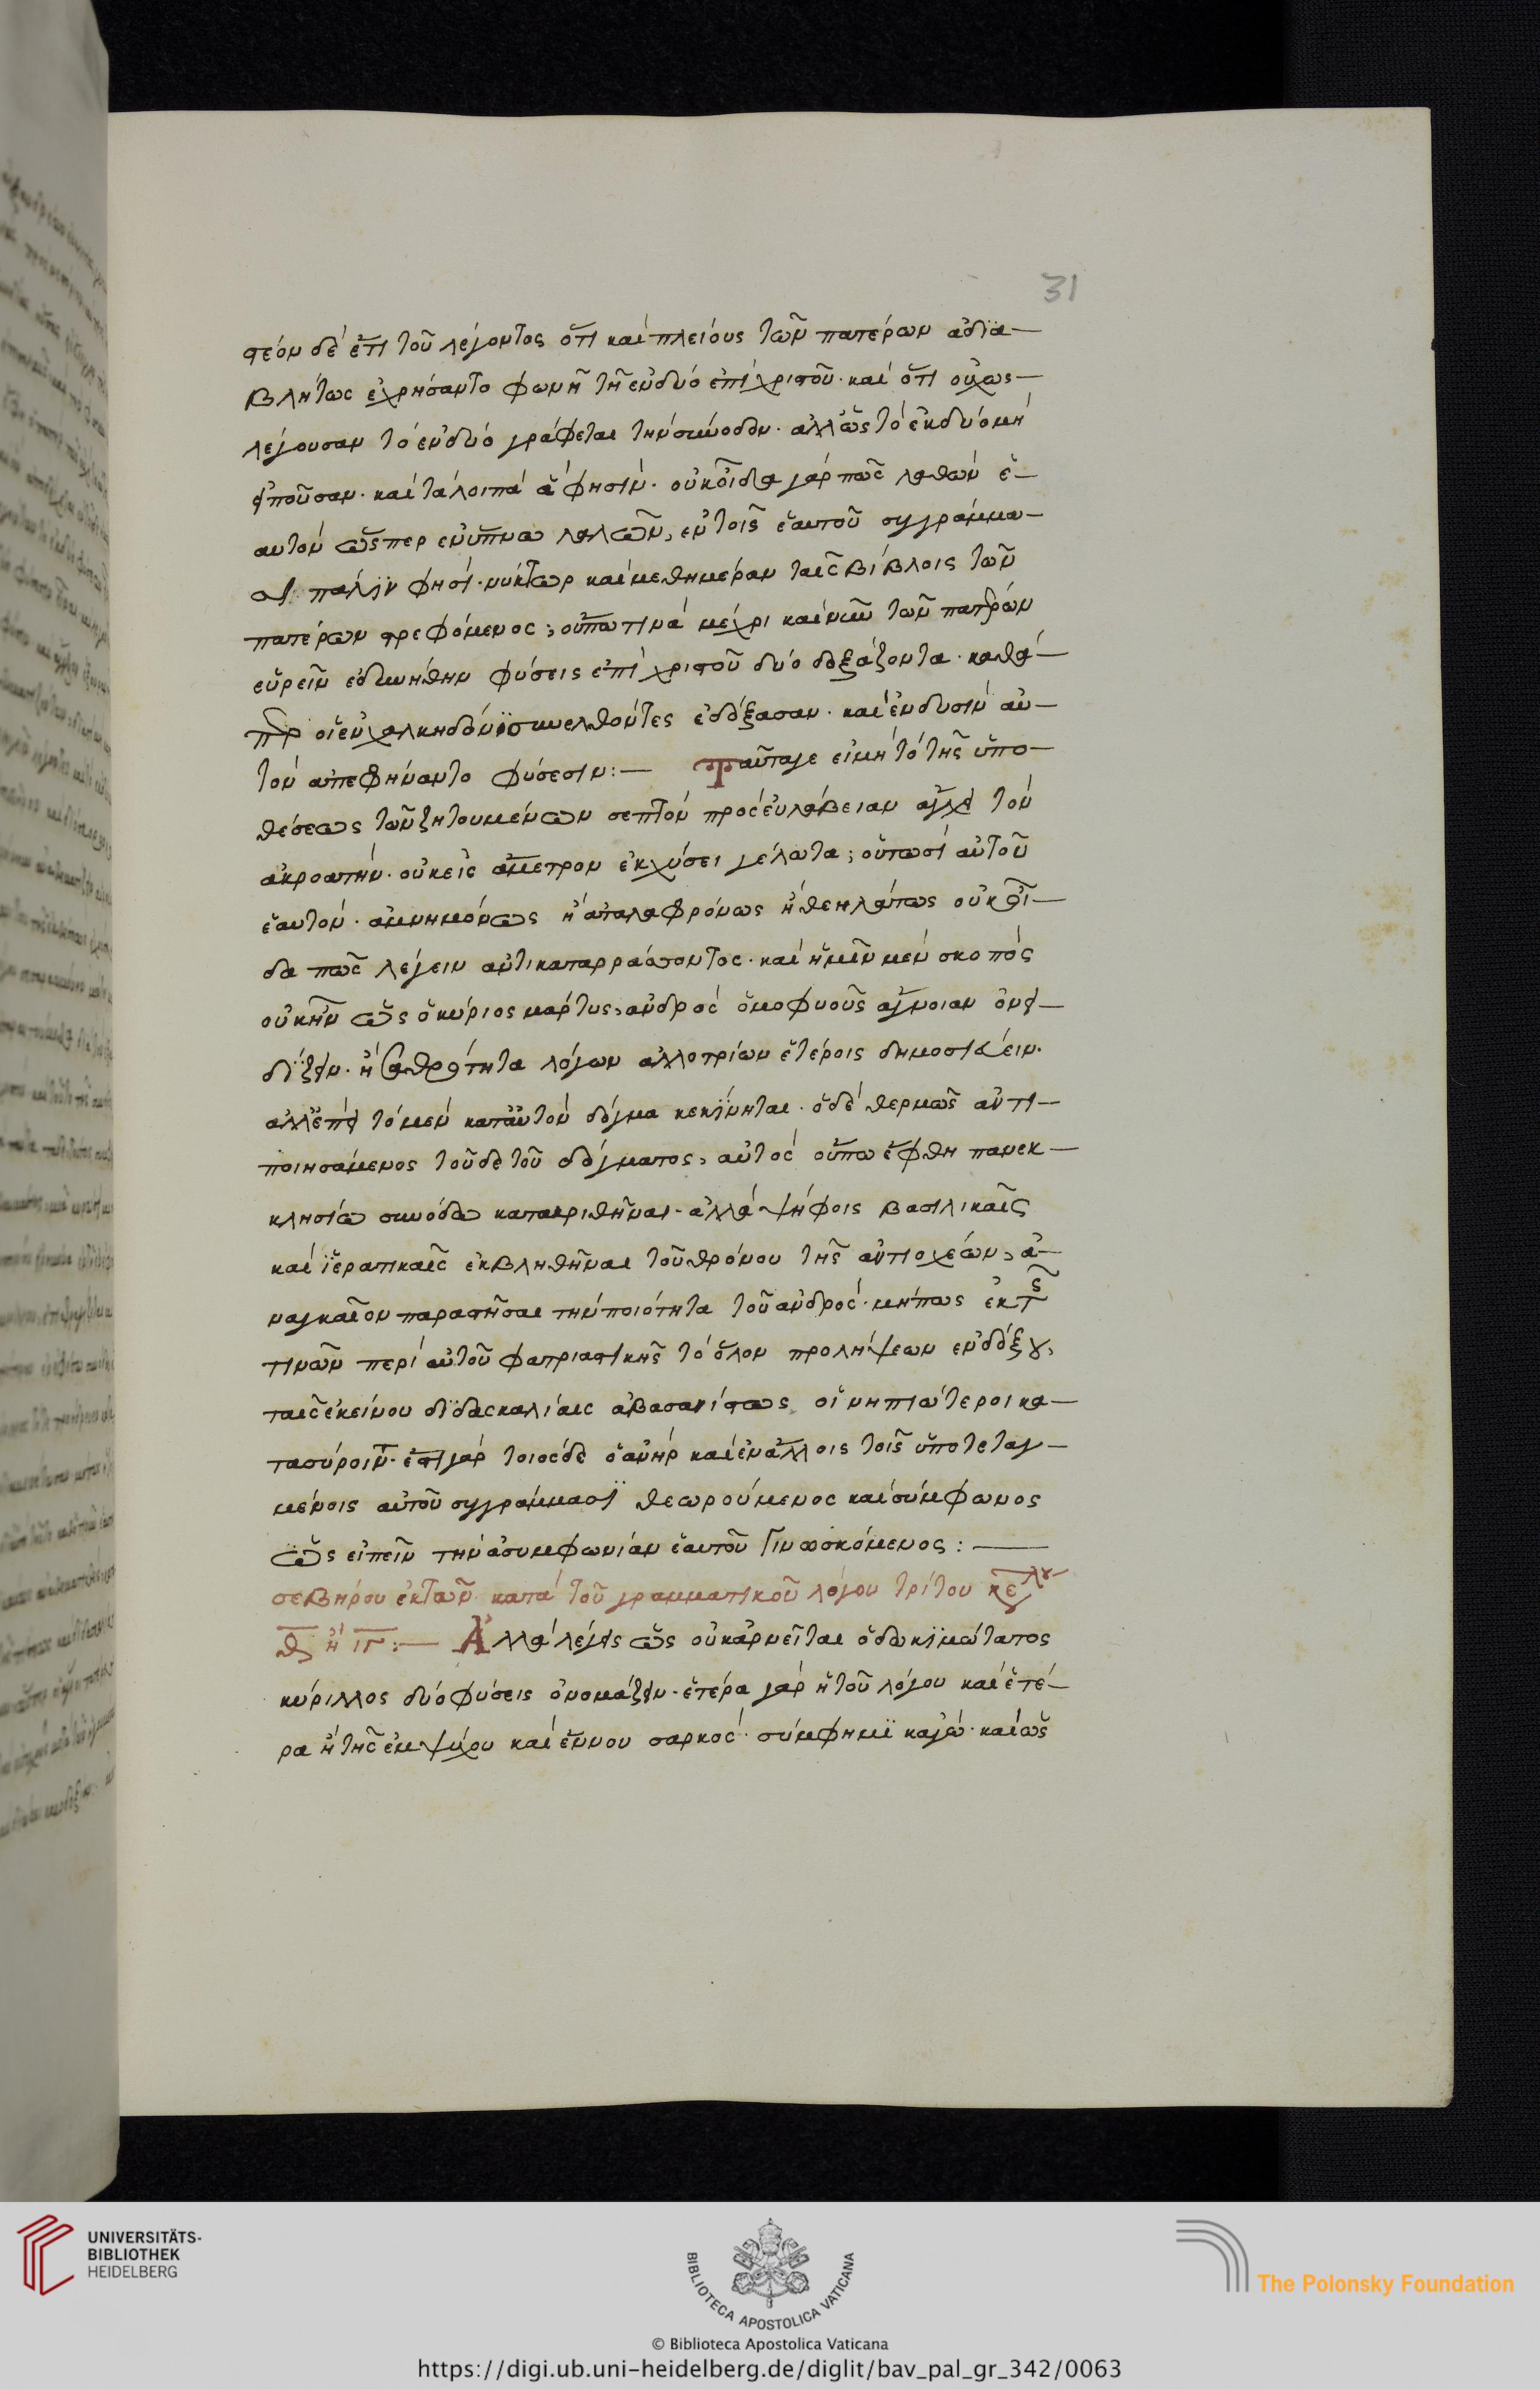 31
στέον δὲ ἔτι τοῦ λέγοντος ὅτι καὶ πλείους τῶν πατέρων ἀδϊα—
βλήτως ἐχρήσαντο φωνῆ τῆ ἐν δυό ἐπὶ χριστοῦ · καὶ ὅτι οὐχ ὡς—
λέγουσαν τὸ ἐν δυό γράφεται τὴν σύνοδον · ἀλλ' ὡς τὸ ἐκ δυό μὴ
εἰποῦσαν · καὶ τὰ λοιπὰ ἅ φησίν · οὐκ οἶδα γὰρ πῶς λαθὼν ἑ—
αυτὸν ὥσπερ ἐν ὕπνω λαλῶν, ἐν τοῖς ἑαυτοῦ συγγράμμα—
σι πάλϊν φησὶ · νύκτωρ καὶ μεθημέραν ταῖς βίβλοις τῶν
πατέρων στρεφόμενος ; οὔπω τινὰ μέχρι καὶ νῦν τῶν πατρών
εὑρεῖν ἐδυνήθην φύσεις ἐπὶ χριστοῦ δύο δοξάζοντα · καθά—
περ οἱ ἐν χαλκηδόνϊ συνελθόντες ἐδόξασαν · καὶ ἐν δυσὶν αὐ—
τὸν ἀπεφήναντο φύσεσιν :— Ταῦτα γε εἰ μὴ τὸ τῆς ὑπο—
θέσεως τῶν ζητουμένων σεπτὸν πρὸς εὐλάβειαν ἄγχει τὸν
ἀκροατήν · οὐκ εἰς ἄμετρον ἐκχύσει γέλωτα ; οὕτωσὶ αὐτοῦ
ἑαυτὸν · ἀμνημόνως ἢ ἀταλαφρόνως ἢ θεηλάτως οὐκ οἶ—
δα πῶς λέγειν ἀντικαταρράσσοντος · καὶ ἡμῖν μὲν σκοπὸς
οὐκ ἦν ὡς ὁ κύριος μάρτυς, ἀνδρὸς ὁμοφυοῦς ἄγνοιαν ὀνει—
δίζειν · ἢ σαθρότητα λόγων ἀλλοτρίων ἑτέροις δημοσιεύειν ·
ἀλλ' ἐπεὶ τὸ μὲν κατ' αὐτὸν δόγμα κεκίνηται · ὁ δὲ θερμῶς ἀντι—
ποιησάμενος τοῦδε τοῦ δόγματος, αὐτὸς οὔπω ἔφθη πανεκ—
κλησίω συνόδω κατακριθῆναι · ἀλλὰ ψήφοις βασιλικαῖς
καὶ ϊερατικαῖς ἐκβληθῆναι τοῦ θρόνου τῆς ἀντιοχέων, ἀ—
ναγκαῖον παραστῆσαι τὴν ποιότητα τοῦ ἀνδρός · μήπως ἐκ τῆς
τινῶν περὶ αὐτοῦ φατριαστικῆς τὸ ὅλον προλήψεων ἐνδόξου,
ταῖς ἐκείνου διδασκαλίαις ἀβασανίστως οἱ νηπιώτεροι κα—
τασύροιντ · ἔστι γὰρ τοιόσδε ὁ ἀνὴρ καὶ ἐν ἄλλοις τοῖς ὑποτεταγ—
μένοις αὐτοῦ συγγράμμασϊ θεωρούμενος καὶ σύμφωνος
ὡς εἰπεῖν τὴν ἀσυμφωνίαν ἑαυτοῦ γινωσκόμενος :—
σεβήρου ἐκ τῶν κατὰ τοῦ γραμματικοῦ λόγου τρίτου κεφλου
θ ἢ ιγ :— Ἀλλὰ λέγεις ὡς οὐκ ἀρνεῖται ὁ δωκϊμώτατος
κύριλλος δύο φύσεις ὀνομάζειν · ἑτέρα γὰρ ἡ τοῦ λόγου καὶ ἑτέ—
ρα ἡ τῆς ἐμψύχου καὶ ἔννου σαρκός · σύμφημϊ κἀγώ · καὶ ὡς
UNIVERSITÄTS-
BIBLIOTHEK
HEIDELBERG
BIBLIOTECA APOSTOLICA VATICANA
The Polonsky Foundation
© Biblioteca Apostolica Vaticana
https://digi.ub.uni-heidelberg.de/diglit/bav_pal_gr_342/0063